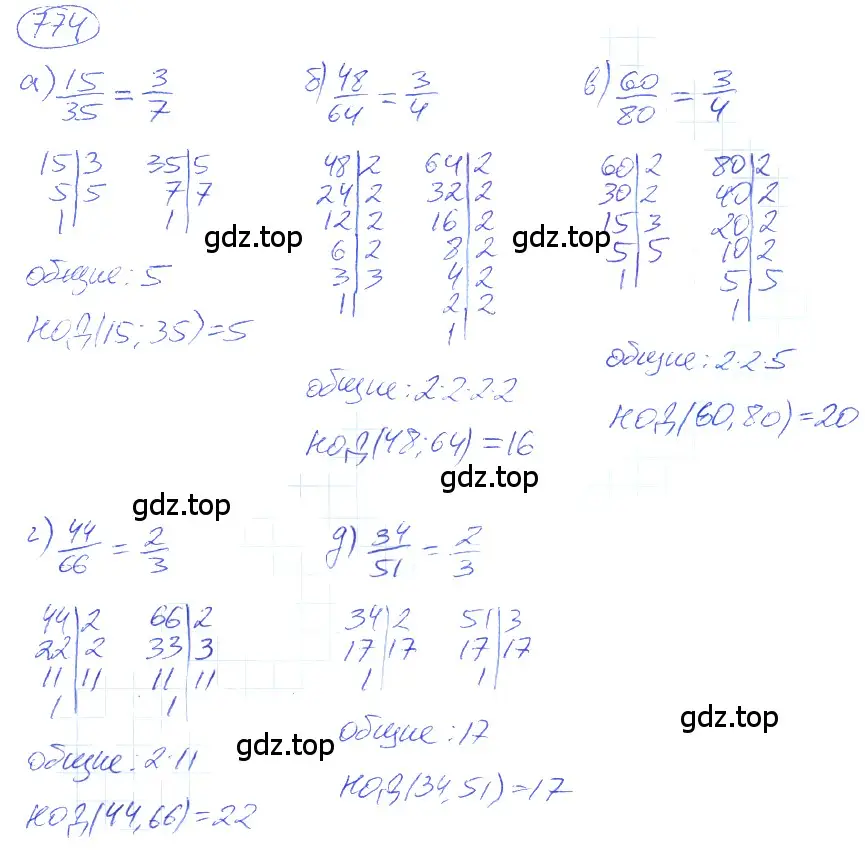 774
а) 15/35 = 3/7
15|3 35|5
5|5 7|7
1| 1|
общие: 5
НОД(15; 35) = 5
б) 48/64 = 3/4
48|2 64|2
24|2 32|2
12|2 16|2
6|2 8|2
3|3 4|2
1| 2|2
1|
общие: 2·2·2·2
НОД(48; 64) = 16
в) 60/80 = 3/4
60|2 80|2
30|2 40|2
15|3 20|2
5|5 10|2
1| 5|5
1|
общие: 2·2·5
НОД(60, 80) = 20
г) 44/66 = 2/3
44|2 66|2
22|2 33|3
11|11 11|11
1| 1|
общие: 2·11
НОД(44, 66) = 22
д) 34/51 = 2/3
34|2 51|3
17|17 17|17
1| 1|
общие: 17
НОД(34, 51) = 17
gdz.top
gdz.top
gdz.top
gdz.top
gdz.top
gdz.top